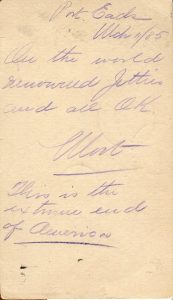 Port Eads
On the world
renowned Jetties
and all OK
Mort
This is the
extreme end
of America